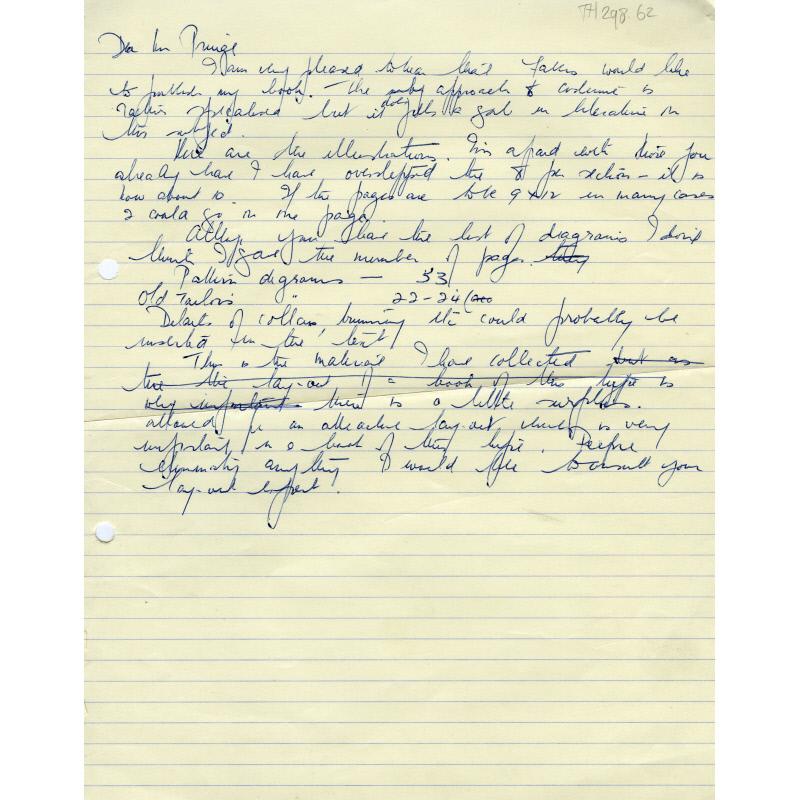 TH 298.62
Dear Mr Pringe
I am very pleased to hear that Fabers would like
to publish my book. - The approach to costume is
rather specialised but it does fill a gap in literature on
this subject.
Here are the illustrations. I'm afraid with those you
already have I have overstepped the 8 per section - it is
now about 10. If the pages are to be 9 x 12 in many cases
2 could go on one page.
Although you have the list of diagrams I don't
think I gave the number of pages.
Pattern diagrams - 33
Old Tailors " 22-24
Details of collars, trimming etc could probably be
inserted in the text
This is the material I have collected but as
the lay-out of a book of this type is
very important there is a little surplus.
allowed for an attractive lay-out which is very
important in a book of this type. Before
eliminating anything I would like to consult your
lay-out expert.